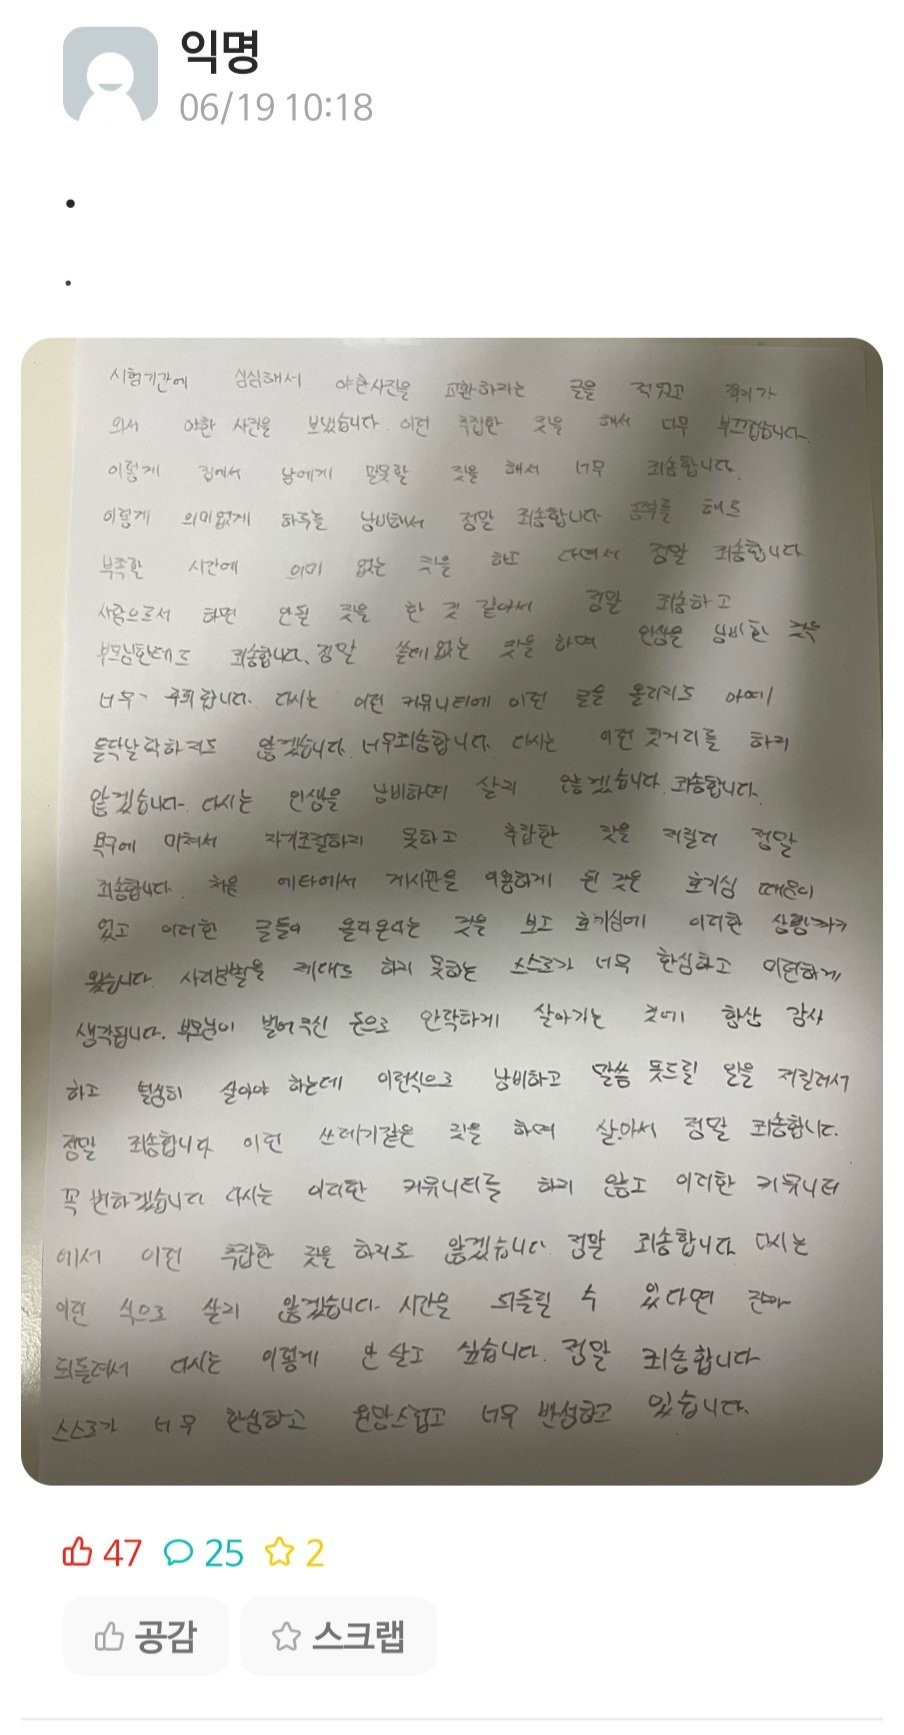 익명
06/19 10:18
.
.
시험기간에 심심해서 야한사진을 교환하자는 글을 적었고 쪽지가
와서 야한 사진을 보냈습니다. 이런 추접한 짓을 해서 너무 부끄럽습니다.
이렇게 집에서 남에게 말못할 짓을 해서 너무 죄송합니다.
이렇게 의미없게 하루를 낭비해서 정말 죄송합니다 공부를 해도
부족할 시간에 의미 없는 짓을 하고 다녀서 정말 죄송합니다
사람으로서 하면 안될 짓을 한 것 같아서 정말 죄송하고
부모님한테도 죄송합니다. 정말 쓸데없는 짓을 하며 인생을 낭비한 것을
너무 후회합니다. 다시는 이런 커뮤니티에 이런 글을 올리지도 아예
들락날락하지도 않겠습니다. 너무죄송합니다. 다시는 이런 짓거리를 하지
않겠습니다. 다시는 인생을 낭비하며 살지 않겠습니다. 죄송합니다.
욕구에 미쳐서 자기조절하지 못하고 추잡한 짓을 저질러 정말
죄송합니다. 처음 에타에서 게시판을 이용하게 된 것은 호기심 때문이
었고 이러한 글들이 올라온다는 것을 보고 호기심에 이러한 상황까지
왔습니다. 사리분별을 제대로 하지 못하는 스스로가 너무 한심하고 미련하게
생각됩니다. 부모님이 벌어주신 돈으로 안락하게 살아가는 것에 항상 감사
하고 열심히 살아야 하는데 이런식으로 낭비하고 말씀 못드릴 일을 저질러서
정말 죄송합니다 이런 쓰레기같은 짓을 하며 살아서 정말 죄송합니다.
꼭 변하겠습니다 다시는 이러한 커뮤니티를 하지 않고 이러한 커뮤니티
에서 이런 추잡한 짓을 하지도 않겠습니다 정말 죄송합니다 다시는
이런 식으로 살지 않겠습니다. 시간을 되돌릴 수 있다면
되돌려서 다시는 이렇게 안 살고 싶습니다. 정말 죄송합니다
스스로가 너무 한심하고 원망스럽고 너무 반성하고 있습니다.
47 25 2
공감 스크랩